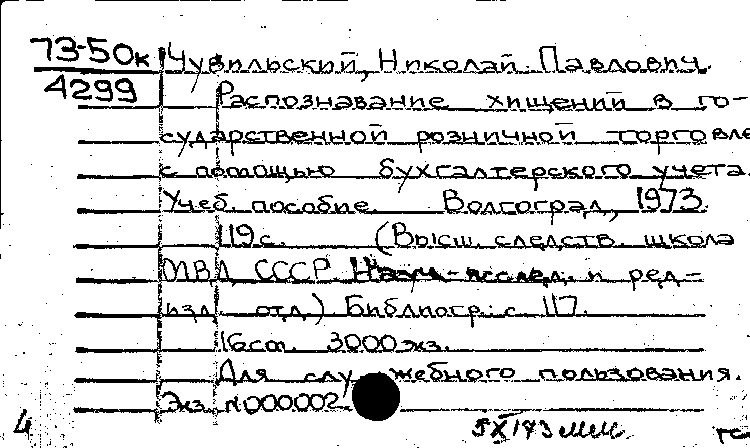 73-50к
4299
Чувильский, Николай Павлович.
Распознавание хищений в го-
сударственной розничной торговле
с помощью бухгалтерского учета.
Учеб. пособие. Волгоград, 1973.
119 с. (Высш. следств. школа
МВД СССР. Науч.-исслед. и ред-
изд. отд.) Библиогр.: с. 117.
16 см. 3000 экз.
Для служебного пользования.
Экз. N000002.
4